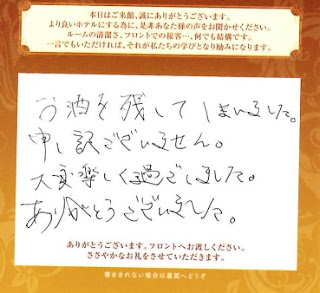 本日はご来館、誠にありがとうございます。
より良いホテルにする為に、是非あなた様の声をお聞かせください。
ルームの清潔さ、フロントでの接客…、何でも結構です。
一言でもいただければ、それが私たちの学びとなり励みになります。
お酒を残してしまいました。
申し訳ございません。
大変楽しく過ごしました。
ありがとうございました。
ありがとうございます。フロントへお渡しください。
ささやかなお礼をさせていただきます。
書ききれない場合は裏面へどうぞ